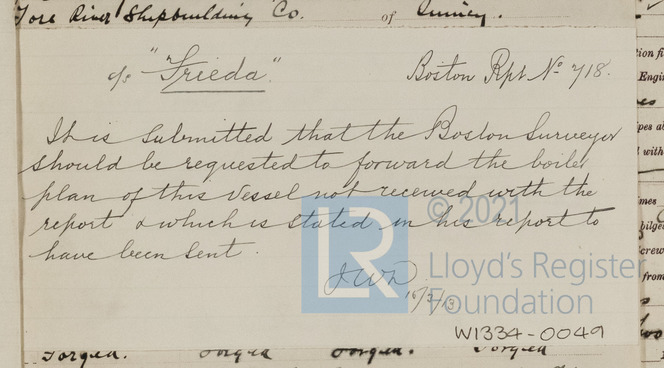 Fore River Shipbuilding Co. of Quincy.
"Frieda". Boston Rpt. No 718.
It is submitted that the Boston Surveyor
should be requested to forward the boiler
plan of this vessel not received with the
report & which is stated in his report to
have been sent.
16/3/13
© 2021
LR
Lloyd's Register
Foundation
W1334-0049
Forged. Forged Forged. Forged